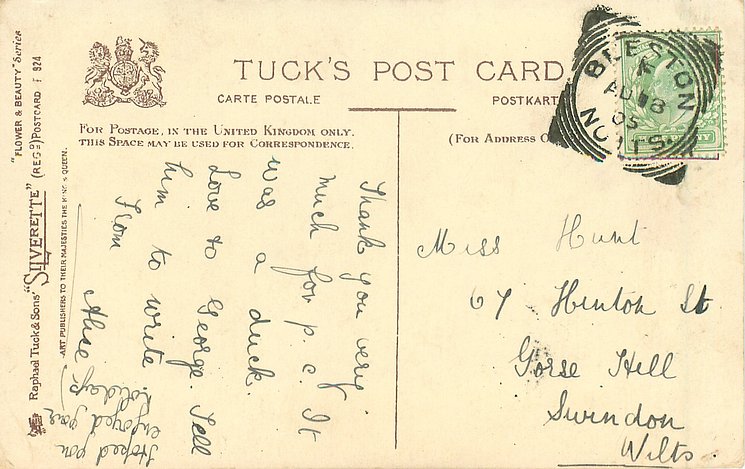 TUCK'S POST CARD
CARTE POSTALE
POSTKART
FOR POSTAGE, IN THE UNITED KINGDOM ONLY.
THIS SPACE MAY BE USED FOR CORRESPONDENCE.
(FOR ADDRESS O
BEESTON
NOTTS
"FLOWER & BEAUTY" Series
(REGD) POSTCARD F 924
Raphael Tuck & Sons' "SILVERETTE"
ART PUBLISHERS TO THEIR MAJESTIES THE KING & QUEEN.
Thank you very
much for p.c. It
was a duck.
Love to George Tell
him to write
From
Alice
hoped you
enjoyed your
holidays
Miss Hunt
67 Hinton St
Gorse Hell
Swindon
Wilts.